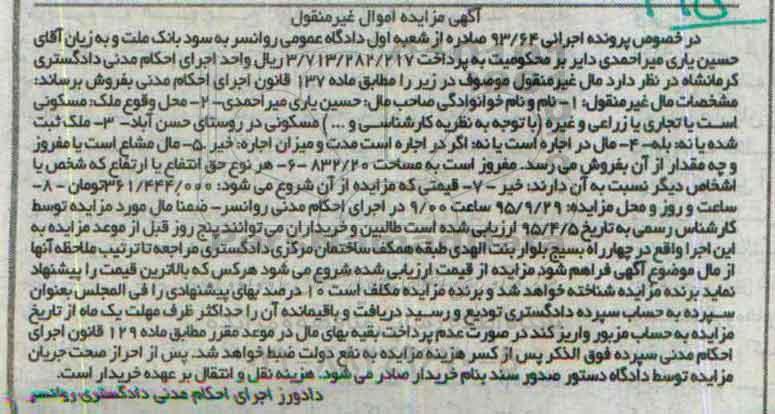 آگهی مزایده اموال غیرمنقول
در خصوص پرونده اجرائی ۹۳/۶۴ صادره از شعبه اول دادگاه عمومی روانسر به سود بانک ملت و به زیان آقای
حسین یاری میراحمدی دایر بر محکومیت به پرداخت ۳/۷۱۳/۲۸۲/۲۱۷ ریال واحد اجرای احکام مدنی دادگستری
کرمانشاه در نظر دارد مال غیرمنقول موصوف در زیر را مطابق ماده ۱۳۷ قانون اجرای احکام مدنی بفروش برساند:
مشخصات مال غیرمنقول: ۱- نام و نام خوانوادگی صاحب مال: حسین یاری میراحمدی- ۲- محل وقوع ملک: مسکونی
است یا تجاری یا زراعی و غیره (با توجه به نظریه کارشناسی و ...) مسکونی در روستای حسن آباد- ۳- ملک ثبت
شده یا نه: بله- ۴- مال در اجاره است یا نه: اگر در اجاره است مدت و میزان اجاره: خیر ۵- مال مشاع است یا مفروز
و چه مقدار از آن بفروش می رسد. مفروز است به مساحت ۸۳۲/۲۰ -۶- هر نوع حق انتفاع یا ارتفاع که شخص یا
اشخاص دیگر نسبت به آن دارند: خیر -۷- قیمتی که مزایده از آن شروع می شود: ۳۶۱/۴۴۴/۰۰۰تومان -۸-
ساعت و روز و محل مزایده: ۹۵/۹/۲۹ ساعت ۹/۰۰ در اجرای احکام مدنی روانسر- ضمنا مال مورد مزایده توسط
کارشناس رسمی به تاریخ ۹۵/۴/۵ ارزیابی شده است طالبین و خریداران می توانند پنج روز قبل از موعد مزایده به
این اجرا واقع در چهارراه بسیج بلوار بنت الهدی طبقه همکف ساختمان مرکزی دادگستری مراجعه تا ترتیب ملاحظه آنها
از مال موضوع آگهی فراهم شود مزایده از قیمت ارزیابی شده شروع می شود هرکس که بالاترین قیمت را پیشنهاد
نماید برنده مزایده شناخته خواهد شد و برنده مزایده مکلف است ۱۰ درصد بهای پیشنهادی را فی المجلس بعنوان
سپرده به حساب سپرده دادگستری تودیع و رسید دریافت و باقیمانده آن را حداکثر ظرف مهلت یک ماه از تاریخ
مزایده به حساب مزبور واریز کند در صورت عدم پرداخت بقیه بهای مال در موعد مقرر مطابق ماده ۱۲۹ قانون اجرای
احکام مدنی سپرده فوق الذکر پس از کسر هزینه مزایده به نفع دولت ضبط خواهد شد. پس از احراز صحت جریان
مزایده توسط دادگاه دستور صدور سند بنام خریدار صادر می شود. هزینه نقل و انتقال بر عهده خریدار است.
دادورز اجرای احکام مدنی دادگستری روانسر